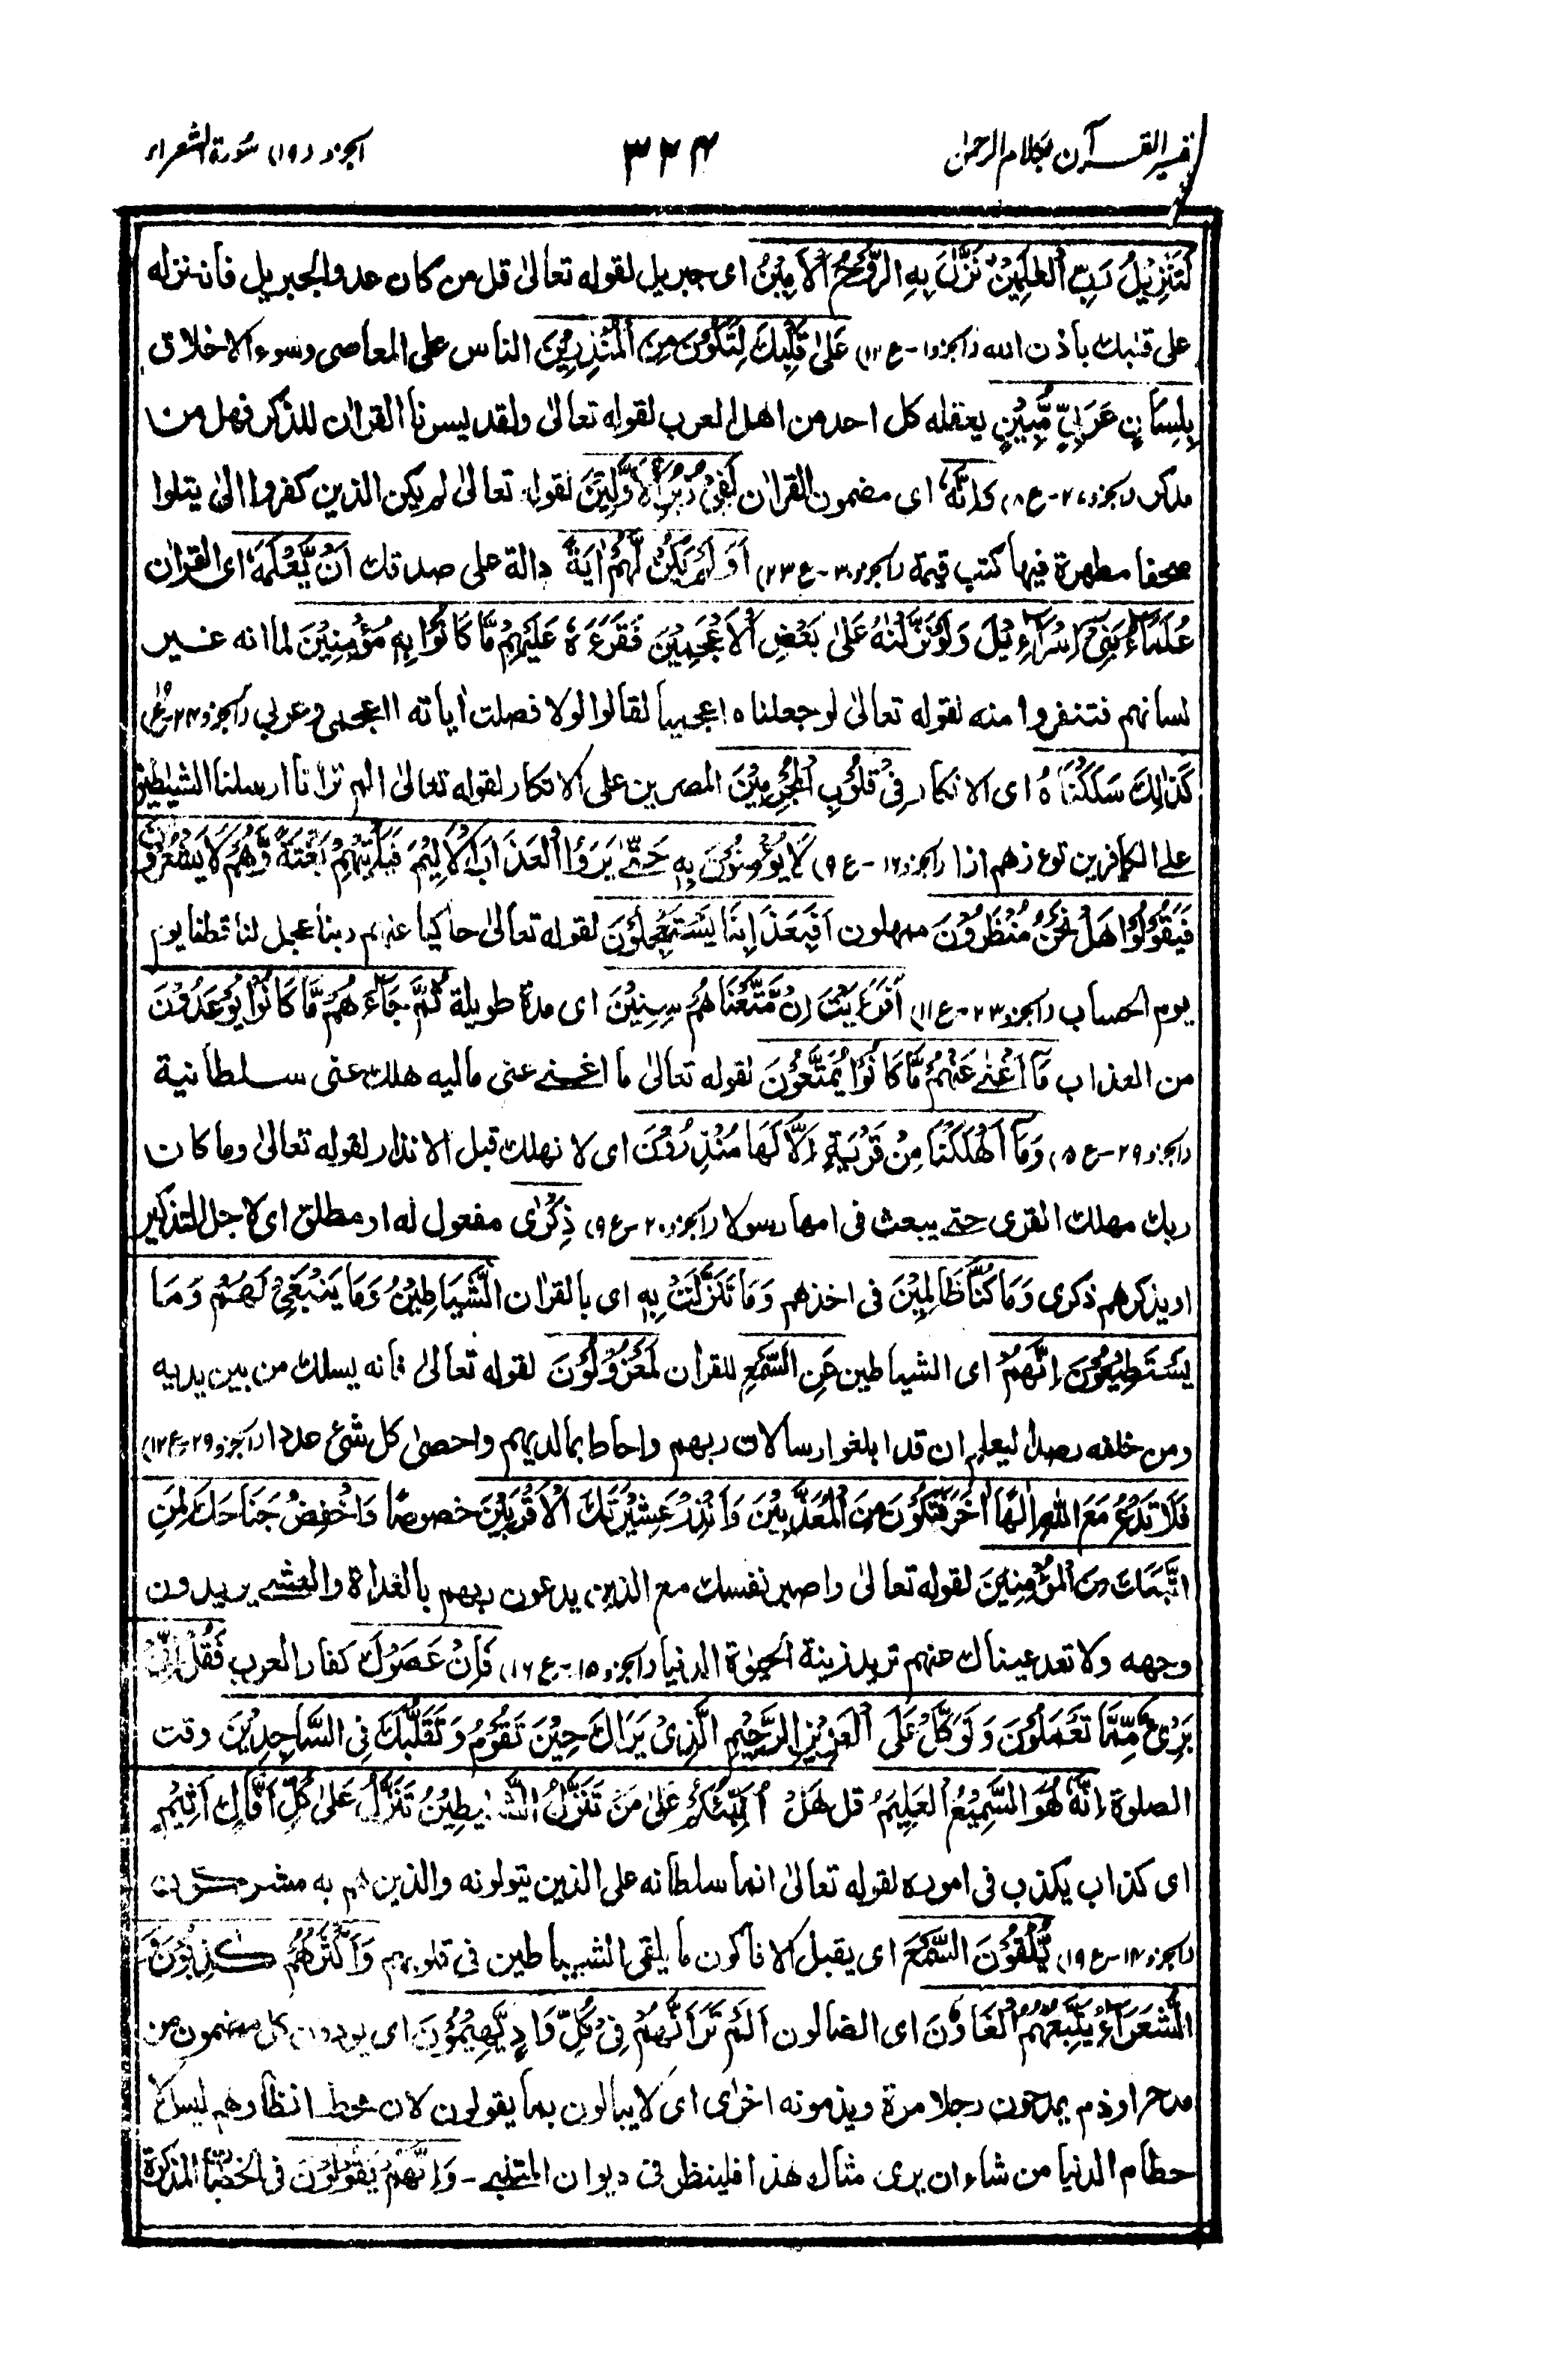 تفسير القرآن بكلام الرحمن ٣٢٤ الجزو (١٩) سورة الشعراء
لَتَنْزِيْلُ رَبِّ الْعٰلَمِيْنَ نَزَلَ بِهِ الرُّوْحُ الْاَمِيْنُ اى جبريل لقوله تعالىٰ قل من كان عدوا لجبريل فانه نزله
على قلبك باذن الله (الجزو ١-ع١٢) عَلٰى قَلْبِكَ لِتَكُوْنَ مِنَ الْمُنْذِرِيْنَ الناس على المعاصى وسوء الاخلاق
بِلِسَانٍ عَرَبِيٍّ مُّبِيْنٍ يعقله كل احد من اهل العرب لقوله تعالىٰ ولقد يسرنا القراٰن للذكر فهل من
مدكر (الجزو ٢٧-ع٨) وَاِنَّهٗ اى مضمون القراٰن لَفِيْ زُبُرِ الْاَوَّلِيْنَ لقوله تعالىٰ لم يكن الذين كفروا الىٰ يتلوا
صحفا مطهرة فيها كتب قيمة (الجزو ٣٠-ع٢٣) اَوَلَمْ يَكُنْ لَّهُمْ اٰيَةً دالة على صدقك اَنْ يَّعْلَمَهٗ اى القراٰن
عُلَمَآءُ بَنِيْ اِسْرَآءِيْلَ وَلَوْ نَزَّلْنٰهُ عَلٰى بَعْضِ الْاَعْجَمِيْنَ فَقَرَءَهٗ عَلَيْهِمْ مَّا كَانُوْا بِهٖ مُؤْمِنِيْنَ لما انه غير
لسانهم فتنفروا منه لقوله تعالىٰ لو جعلناه اعجميا لقالوا لولا فصلت اياته ااعجمى وعربى (الجزو ٢٤-ع)
كَذٰلِكَ سَلَكْنٰهُ اى الانكار فِيْ قُلُوْبِ الْمُجْرِمِيْنَ المصرين على الانكار لقوله تعالىٰ الم تر انا ارسلنا الشيٰطين
على الكافرين تؤزهم ازا (الجزو ١٦-ع٩) لَا يُؤْمِنُوْنَ بِهٖ حَتّٰى يَرَوُا الْعَذَابَ الْاَلِيْمَ فَيَاْتِيَهُمْ بَغْتَةً وَّهُمْ لَا يَشْعُرُوْنَ
فَيَقُوْلُوْا هَلْ نَحْنُ مُنْظَرُوْنَ ممهلون اَفَبِعَذَابِنَا يَسْتَعْجِلُوْنَ لقوله تعالىٰ حاكيا عنهم ربنا عجل لنا قطنا يوم
يوم الحساب (الجزو ٢٣-ع١١) اَفَرَءَيْتَ اِنْ مَّتَّعْنَاهُمْ سِنِيْنَ اى مدة طويلة ثُمَّ جَآءَهُمْ مَّا كَانُوْا يُوْعَدُوْنَ
من العذاب مَآ اَغْنٰى عَنْهُمْ مَّا كَانُوْا يُمَتَّعُوْنَ لقوله تعالىٰ ما اغنى عنى ماليه هلك عنى سلطانية
(الجزو ٢٩-ع٥) وَمَآ اَهْلَكْنَا مِنْ قَرْيَةٍ اِلَّا لَهَا مُنْذِرُوْنَ اى لا نهلك قبل الانذار لقوله تعالىٰ وما كان
ربك مهلك القرى حتى يبعث فى امها رسولا (الجزو ٢٠-ع٩) ذِكْرٰى مفعول له او مطلق اى لاجل التذكير
او يذكرهم ذكرى وَمَا كُنَّا ظَالِمِيْنَ فى اخذهم وَمَا تَنَزَّلَتْ بِهٖ اى بالقراٰن الشَّيَاطِيْنُ وَمَا يَنْبَغِيْ لَهُمْ وَمَا
يَسْتَطِيْعُوْنَ اِنَّهُمْ اى الشياطين عَنِ السَّمْعِ للقراٰن لَمَعْزُوْلُوْنَ لقوله تعالىٰ فانه يسلك من بين يديه
ومن خلفه رصدا ليعلم ان قد ابلغوا رسالات ربهم واحاط بما لديهم واحصىٰ كل شئ عددا (الجزو ٢٩-ع١٢)
فَلَا تَدْعُ مَعَ اللّٰهِ اِلٰهًا اٰخَرَ فَتَكُوْنَ مِنَ الْمُعَذَّبِيْنَ وَاَنْذِرْ عَشِيْرَتَكَ الْاَقْرَبِيْنَ خصوصًا وَاخْفِضْ جَنَاحَكَ لِمَنِ
اتَّبَعَكَ مِنَ الْمُؤْمِنِيْنَ لقوله تعالىٰ واصبر نفسك مع الذين يدعون ربهم بالغداة والعشى يريدون
وجهه ولا تعد عيناك عنهم تريد زينة الحيوٰة الدنيا (الجزو ١٥-ع١٦) فَاِنْ عَصَوْكَ كفار العرب فَقُلْ اِنِّيْ
بَرِيْءٌ مِّمَّا تَعْمَلُوْنَ وَتَوَكَّلْ عَلَى الْعَزِيْزِ الرَّحِيْمِ الَّذِيْ يَرَاكَ حِيْنَ تَقُوْمُ وَتَقَلُّبَكَ فِى السَّاجِدِيْنَ وقت
الصلوة اِنَّهٗ هُوَ السَّمِيْعُ الْعَلِيْمُ قل هَلْ اُنَبِّئُكُمْ عَلٰى مَنْ تَنَزَّلُ الشَّيٰطِيْنُ تَنَزَّلُ عَلٰى كُلِّ اَفَّاكٍ اَثِيْمٍ
اى كذاب يكذب فى اموره لقوله تعالىٰ انما سلطانه على الذين يتولونه والذين هم به مشركون
(الجزو ١٤-ع١٩) يُّلْقُوْنَ السَّمْعَ اى يقبل الافاكون ما يلقى الشياطين فى قلوبهم وَاَكْثَرُهُمْ كٰذِبُوْنَ وَ
الشُّعَرَآءُ يَتَّبِعُهُمُ الْغَاوٗنَ اى الضالون اَلَمْ تَرَ اَنَّهُمْ فِيْ كُلِّ وَادٍ يَّهِيْمُوْنَ اى يوردون كل مضمون من
مدح او ذم يمدحون رجلا مرة ويذمونه اخرٰى اى لا يبالون بما يقولون لان محط انظارهم ليس الا
حطام الدنيا من شاء ان يرى مثال هذا فلينظر فى ديوان المتنبى - وَاِنَّهُمْ يَقُوْلُوْنَ فى المذكرة